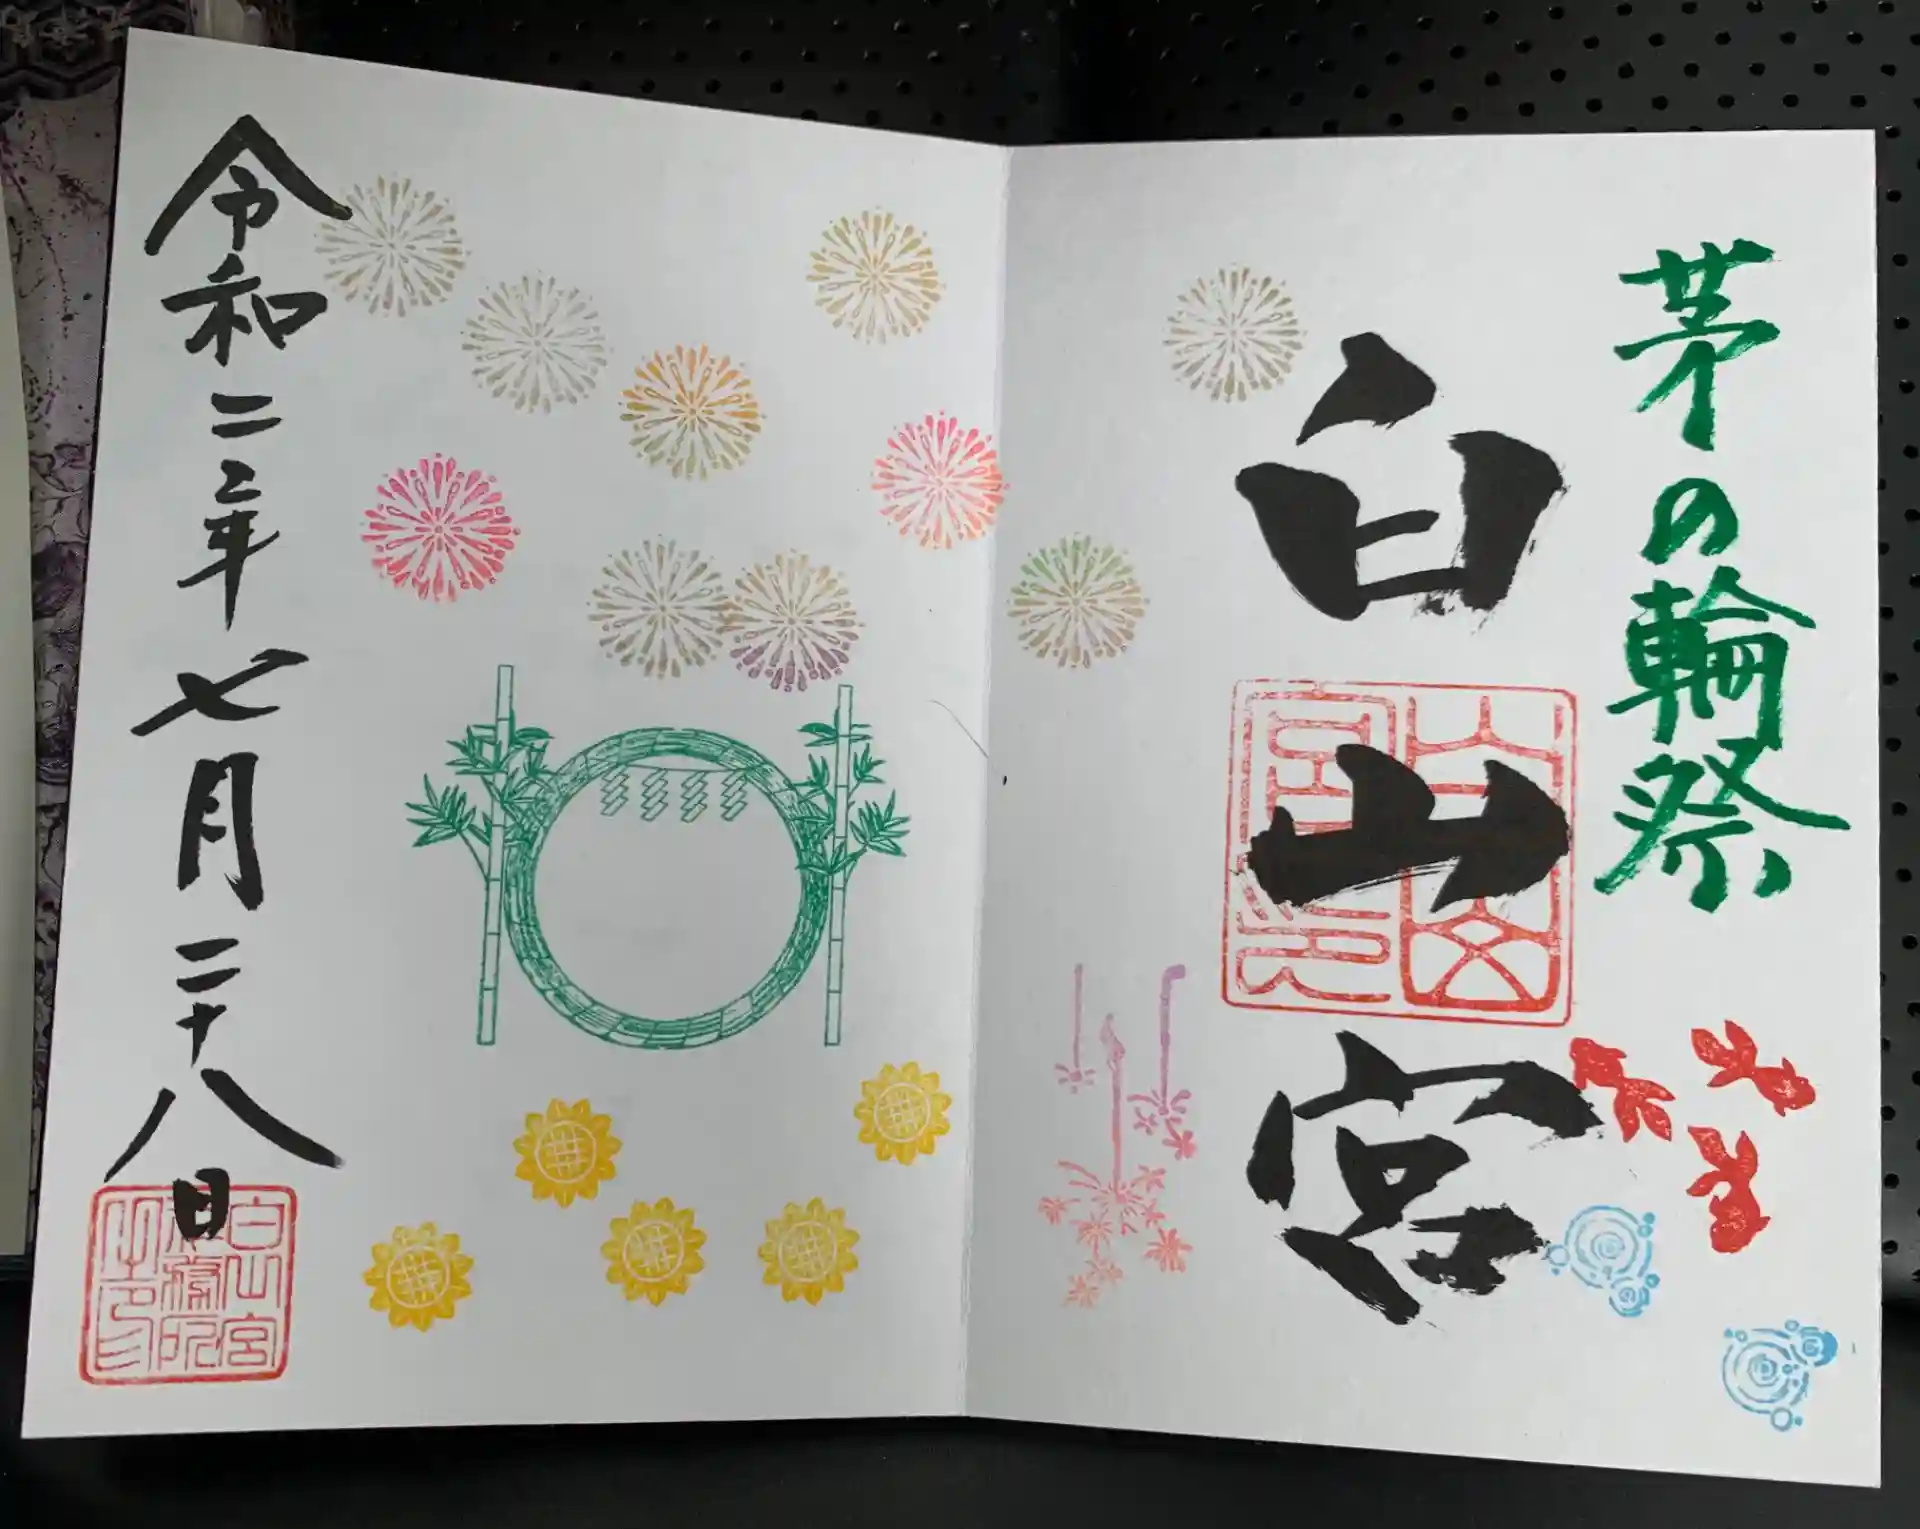 茅の輪祭
白山宮
令和二年七月二十八日
白山宮